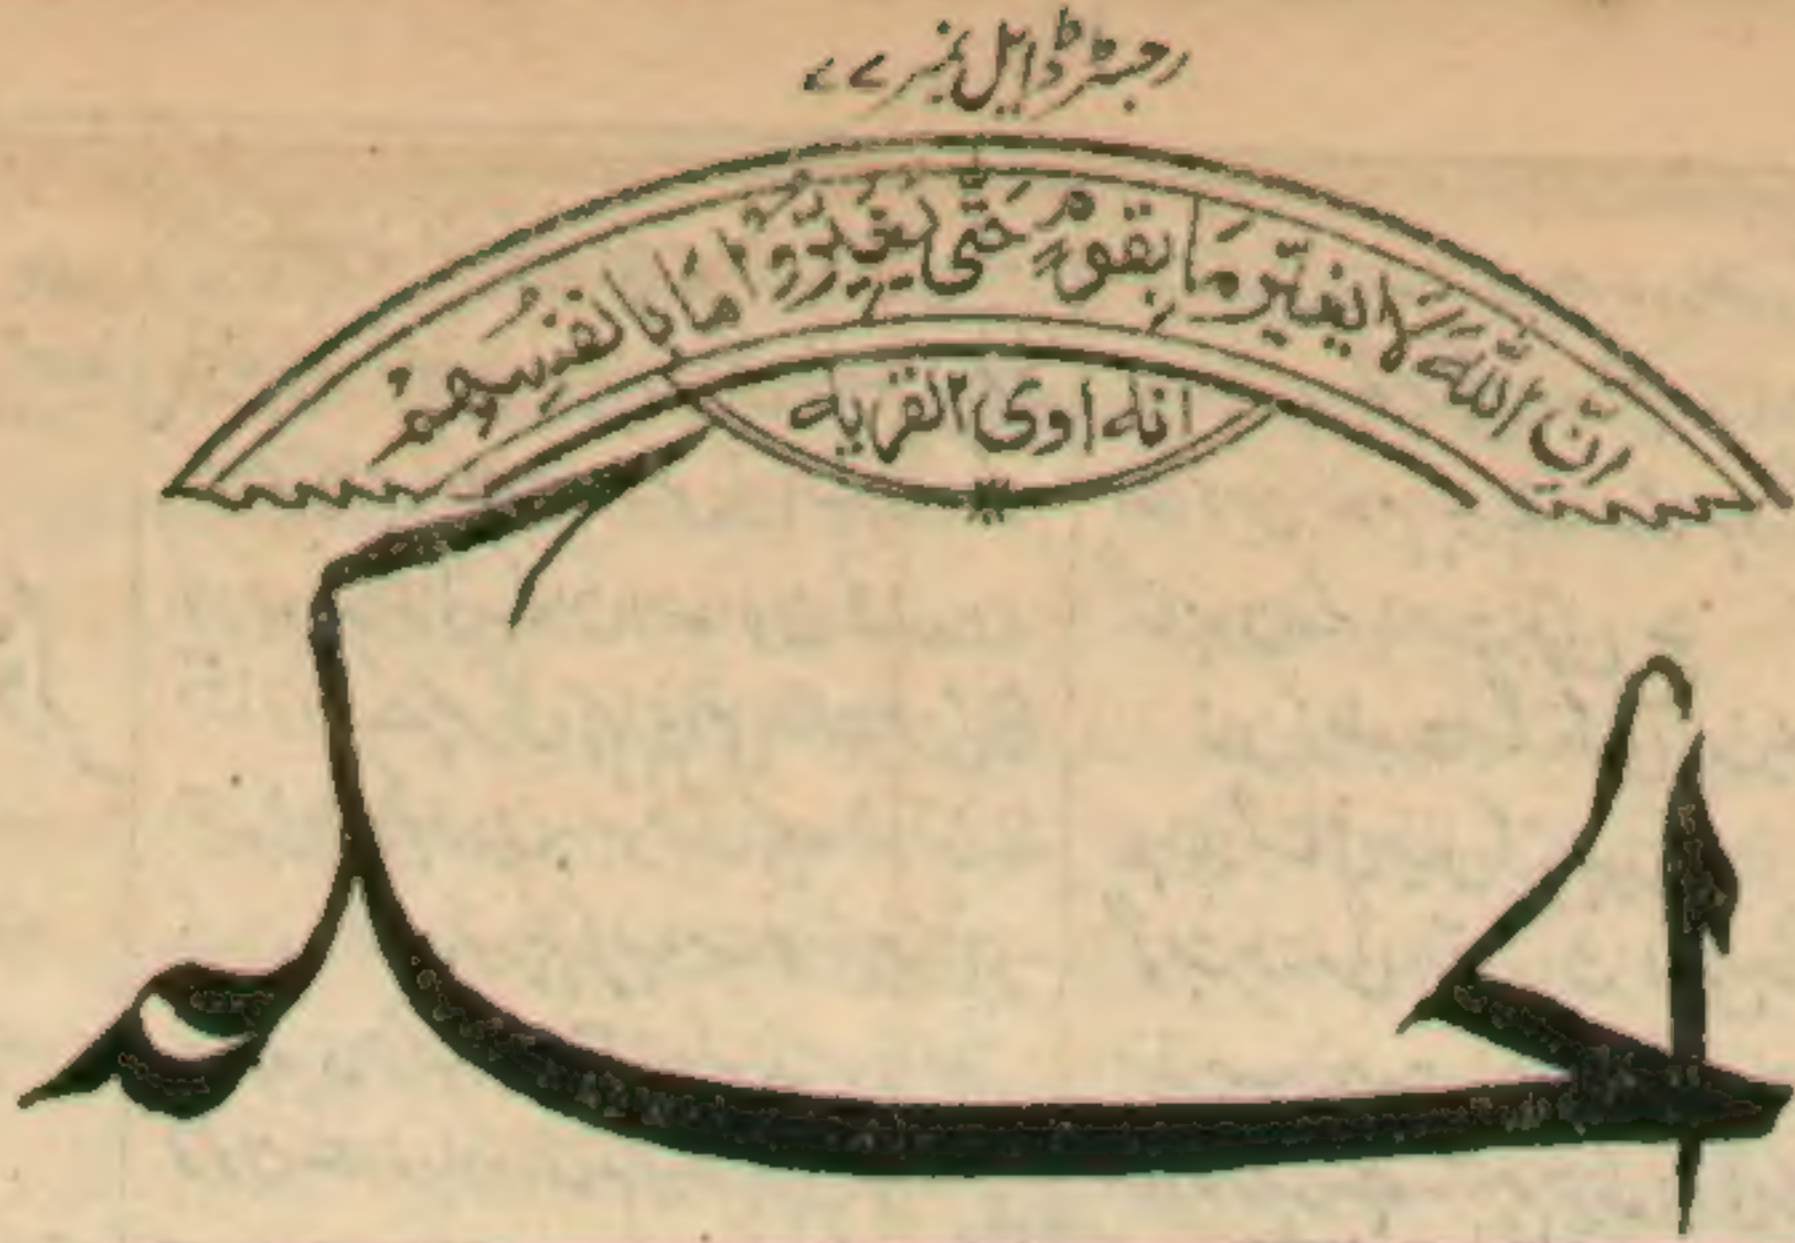 رجسٹرڈ ایل نمبر ۷۷
اِنَّ اللّٰهَ لَا يغيّر مَا بِقَومٍ حَتّٰى يُغَيِّرُوْا مَا بِاَنفُسِهِمْ
انه اوى القريه
الحكم